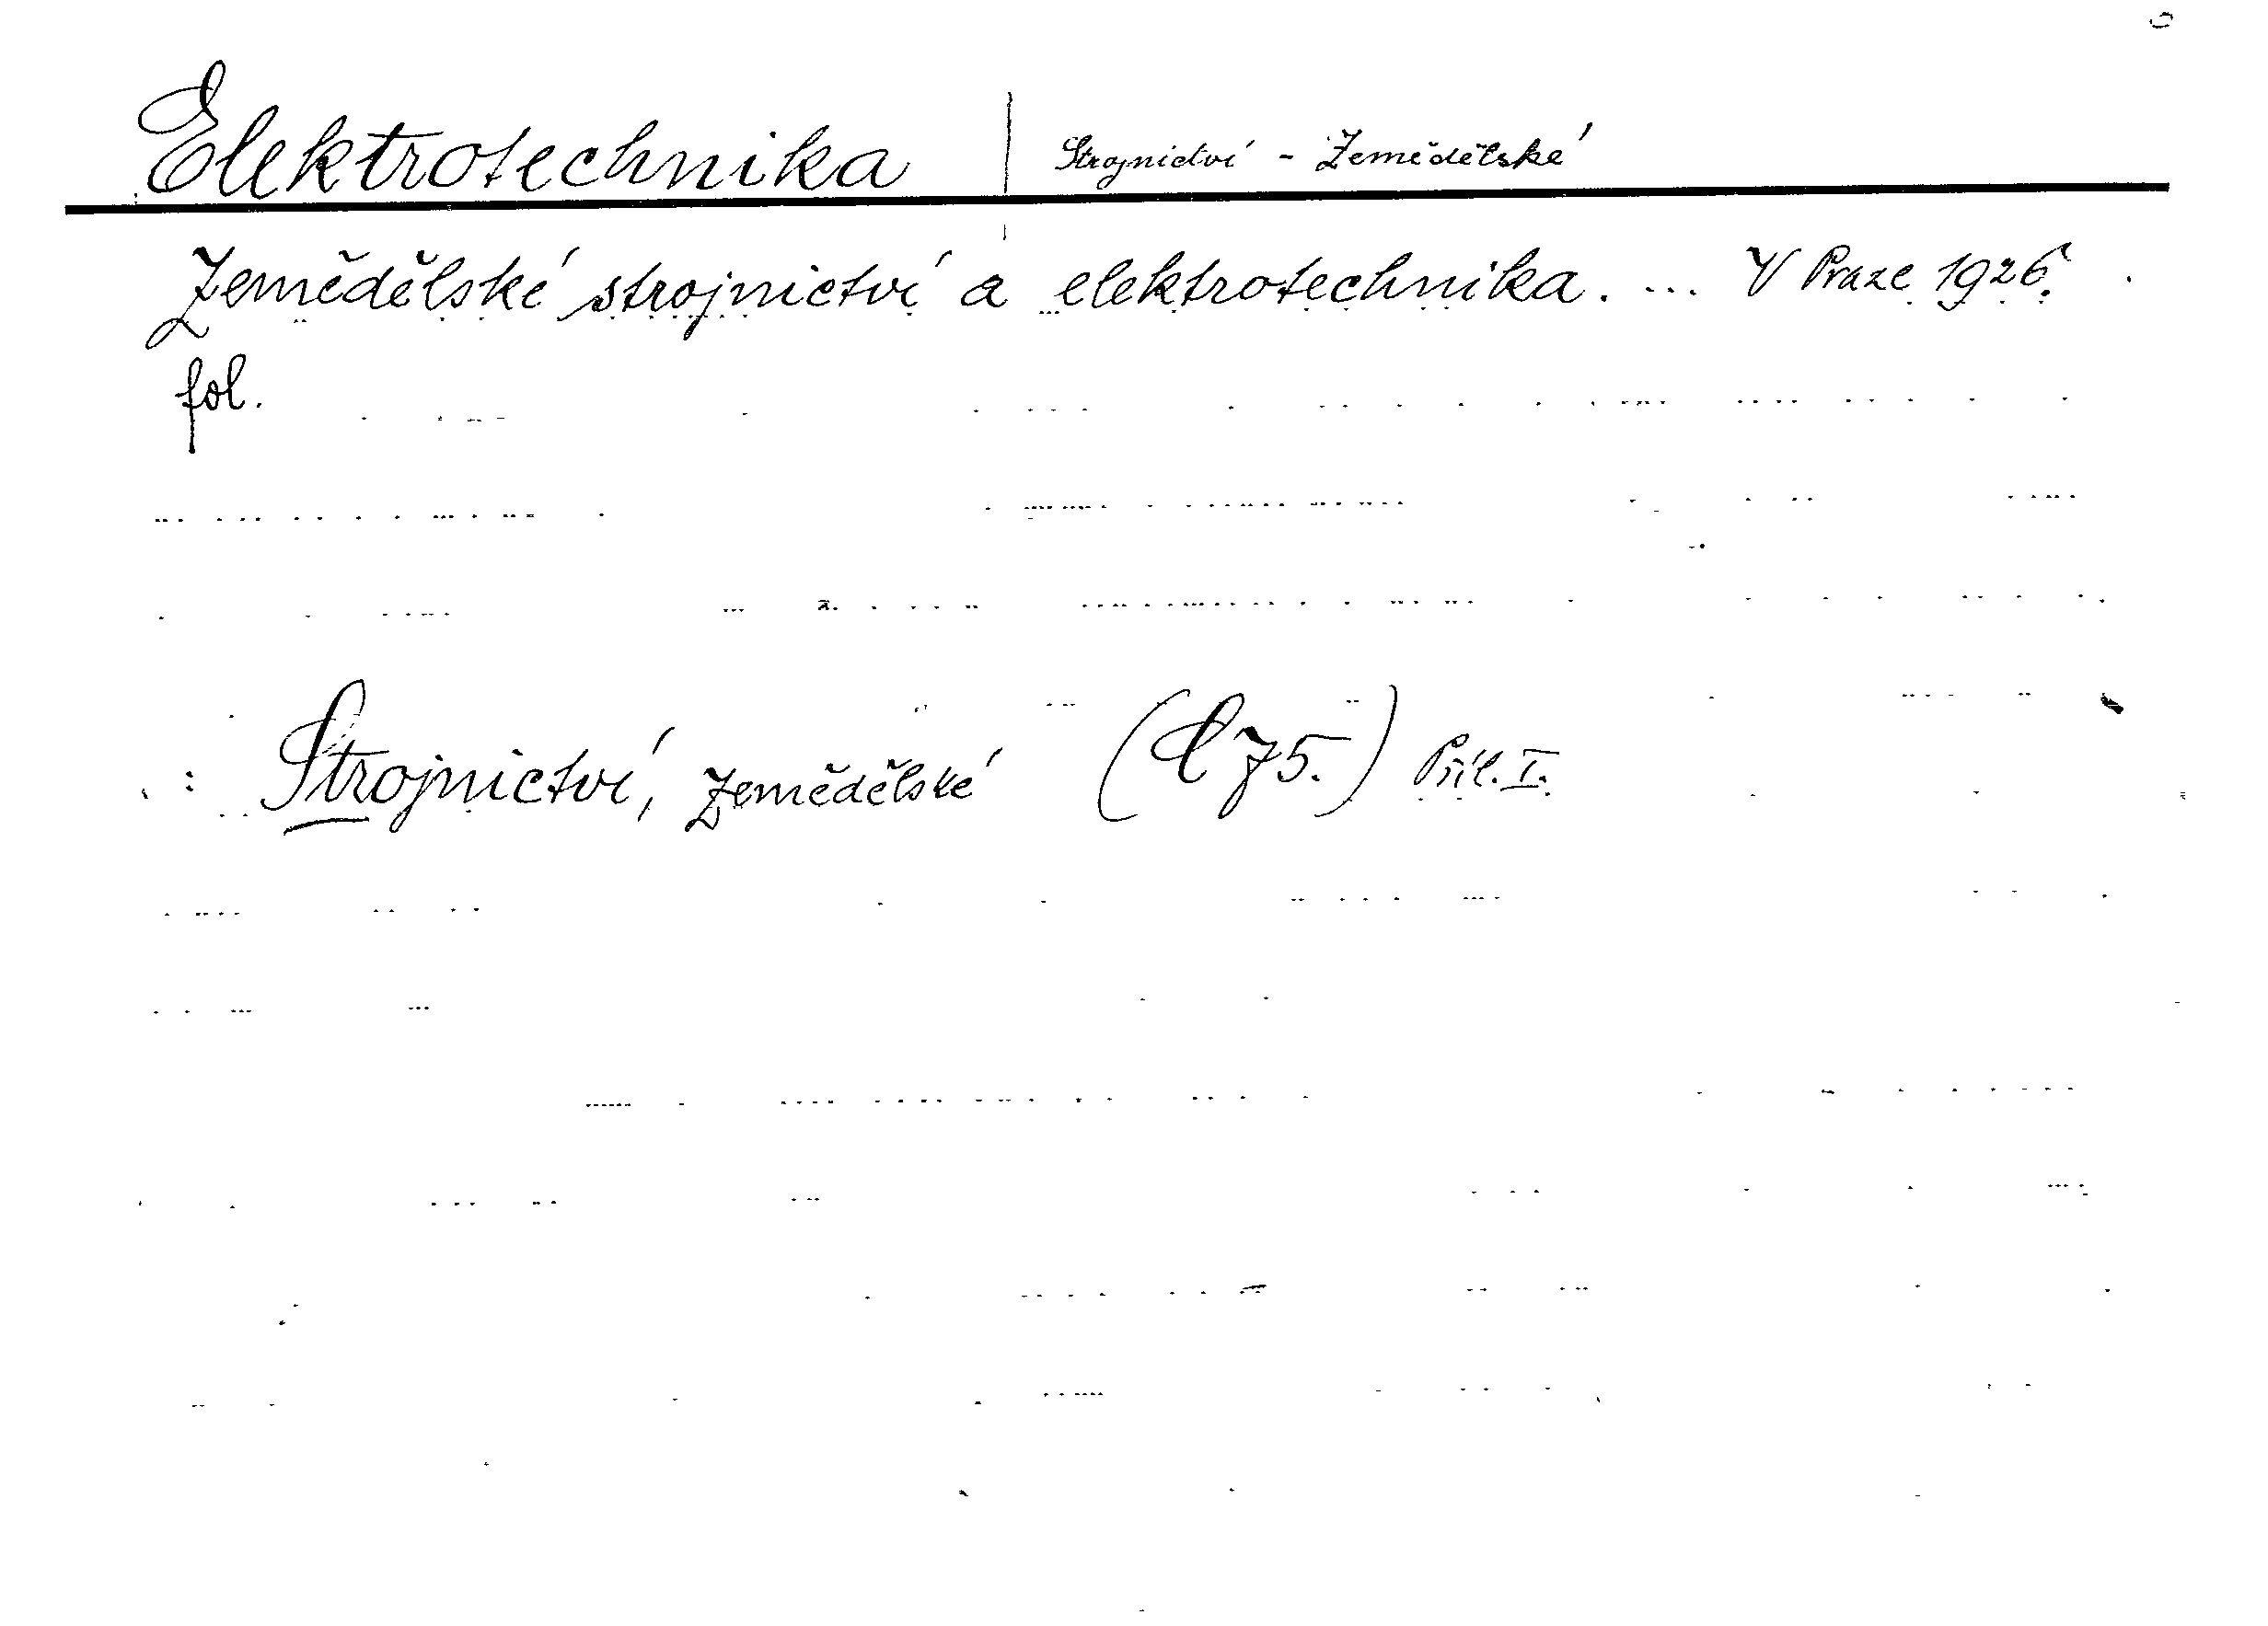 Elektrotechnika | Strojnictví - Zemědělské
Zemědělské strojnictví a elektrotechnika. ... V Praze 1926.
fol.
: Strojnictví, zemědělské (C 75.) Příl. I.